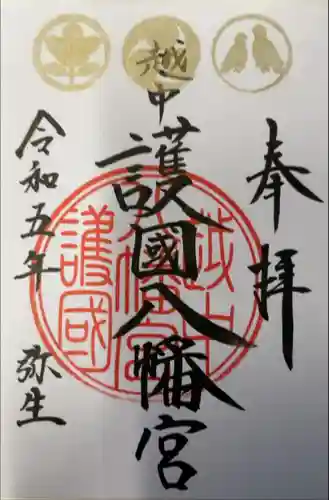 奉拝
越中
護國八幡宮
越中
八幡宮
護國
令和五年
弥生